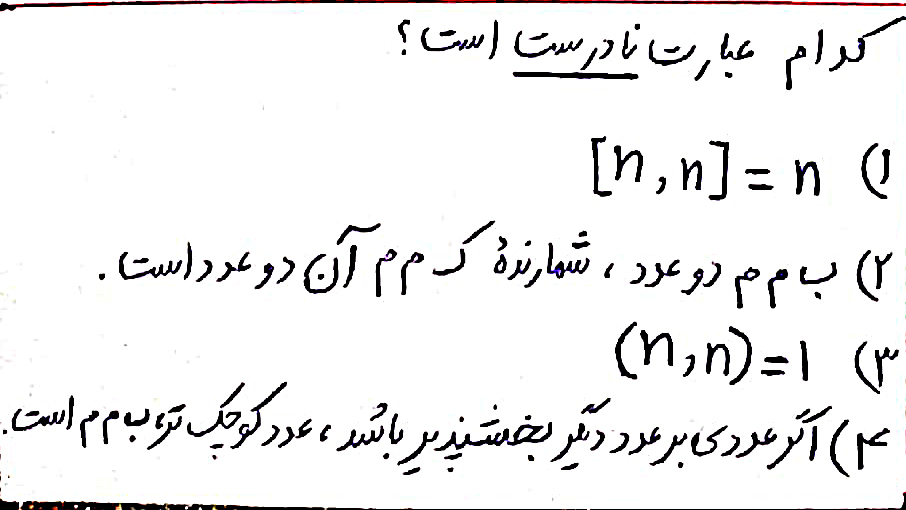 کدام عبارت نادرست است؟
۱) [n,n]=n
۲) ب م م دو عدد، شمارندهٔ ک م م آن دو عدد است.
۳) (n,n)=1
۴) اگر عددی بر عدد دیگر بخشپذیر باشد، عدد کوچک تر، ب م م است.